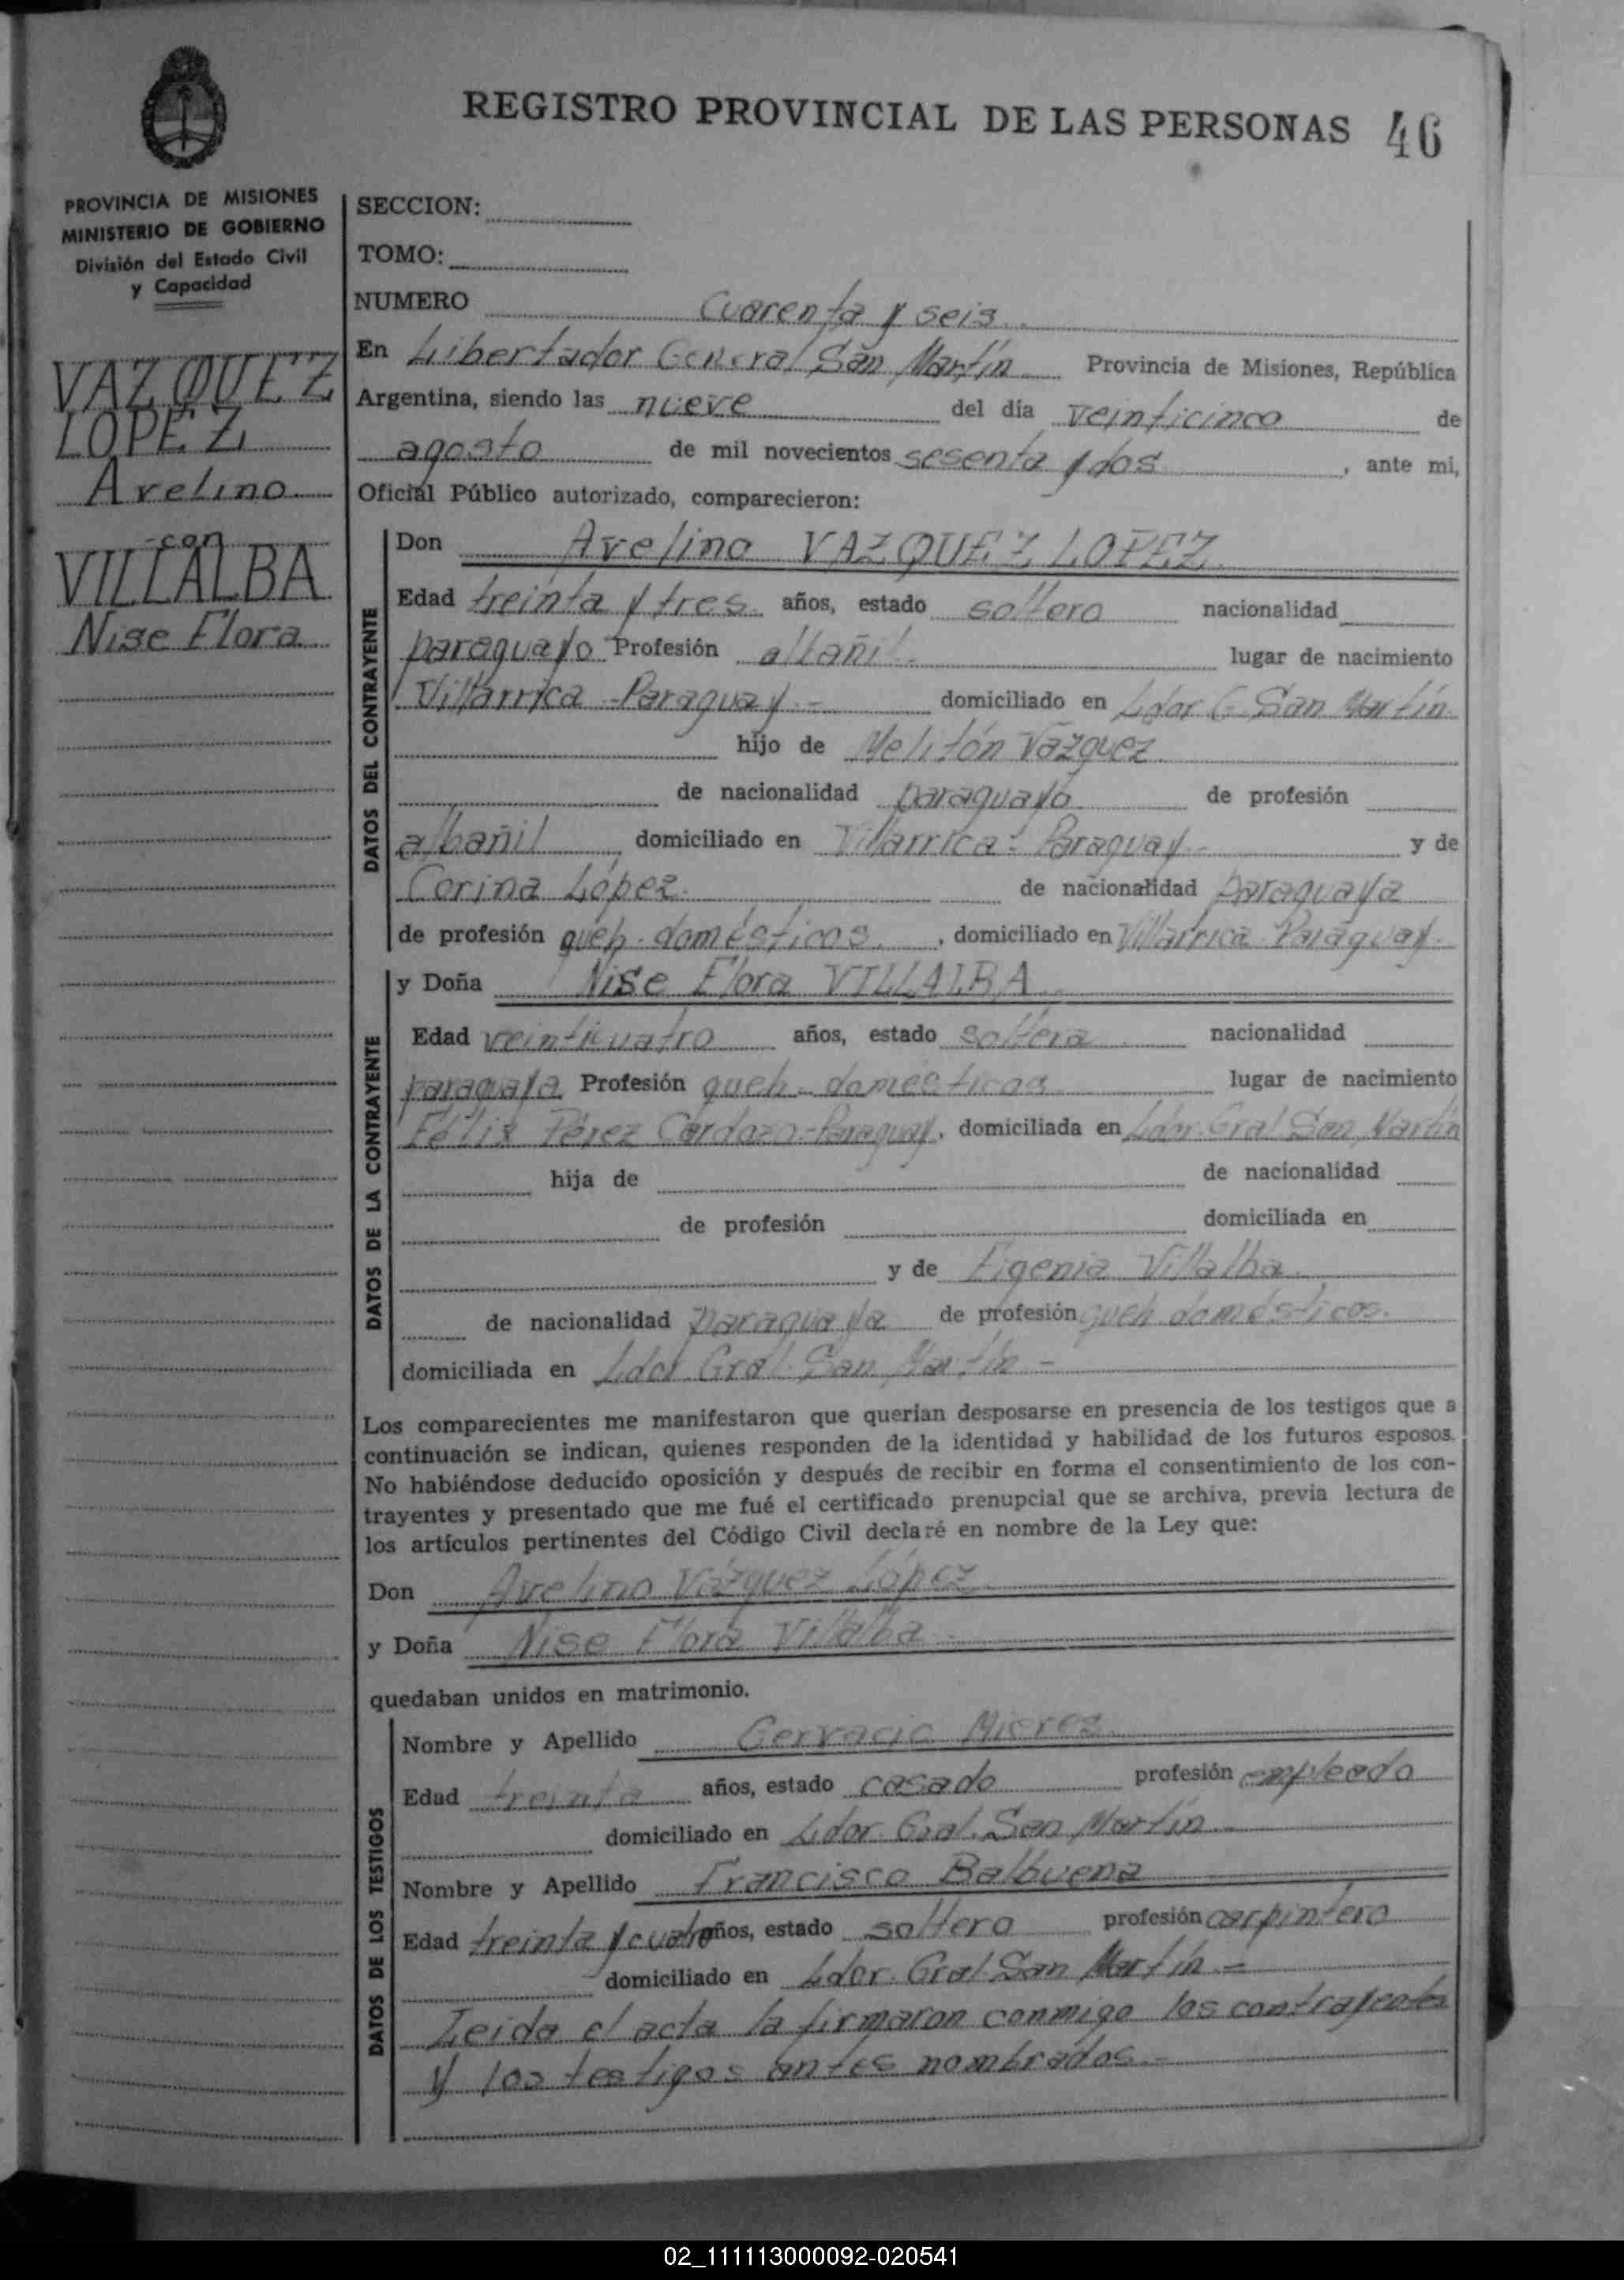 REGISTRO PROVINCIAL DE LAS PERSONAS 46
PROVINCIA DE MISIONES
MINISTERIO DE GOBIERNO
División del Estado Civil
y Capacidad
VAZQUEZ
LOPEZ
Avelino
con
VILLALBA
Nise Flora
SECCION:
TOMO:
NUMERO Cuarenta y seis
En Libertador General San Martín Provincia de Misiones, República
Argentina, siendo las nueve del día veinticinco de
agosto de mil novecientos sesenta y dos, ante mi,
Oficial Público autorizado, comparecieron:
DATOS DEL CONTRAYENTE
Don Avelino VAZQUEZ LOPEZ
Edad treinta y tres años, estado soltero nacionalidad
paraguayo Profesión albañil.- lugar de nacimiento
Villarrica - Paraguay.- domiciliado en Ldor G. San Martín
hijo de Melitón Vázquez
de nacionalidad paraguayo de profesión
albañil domiciliado en Villarrica - Paraguay - y de
Corina López. de nacionalidad paraguaya
de profesión queh. domésticos, domiciliado en Villarrica Paraguay.
DATOS DE LA CONTRAYENTE
y Doña Nise Flora VILLALBA
Edad veinticuatro años, estado soltera nacionalidad
paraguaya Profesión queh. domésticos lugar de nacimiento
Félix Pérez Cardozo - Paraguay, domiciliada en Ldor. Gral San Martín
hija de de nacionalidad
de profesión domiciliada en
y de Eigenia Villalba
de nacionalidad paraguaya de profesión queh domésticos.
domiciliada en Ldor. Gral. San Martín -
Los comparecientes me manifestaron que querían desposarse en presencia de los testigos que a
continuación se indican, quienes responden de la identidad y habilidad de los futuros esposos.
No habiéndose deducido oposición y después de recibir en forma el consentimiento de los con-
trayentes y presentado que me fué el certificado prenupcial que se archiva, previa lectura de
los artículos pertinentes del Código Civil declaré en nombre de la Ley que:
Don Avelino Vázquez López
y Doña Nise Flora Villalba
quedaban unidos en matrimonio.
DATOS DE LOS TESTIGOS
Nombre y Apellido Gervacio Mieres
Edad treinta años, estado casado profesión empleado
domiciliado en Ldor. Gral. San Martín
Nombre y Apellido Francisco Balbuena
Edad treinta y cuatro años, estado soltero profesión carpintero
domiciliado en Ldor. Gral. San Martín -
Leida el acta la firmaron conmigo los contrayentes
y los testigos antes nombrados.-
02_111113000092-020541